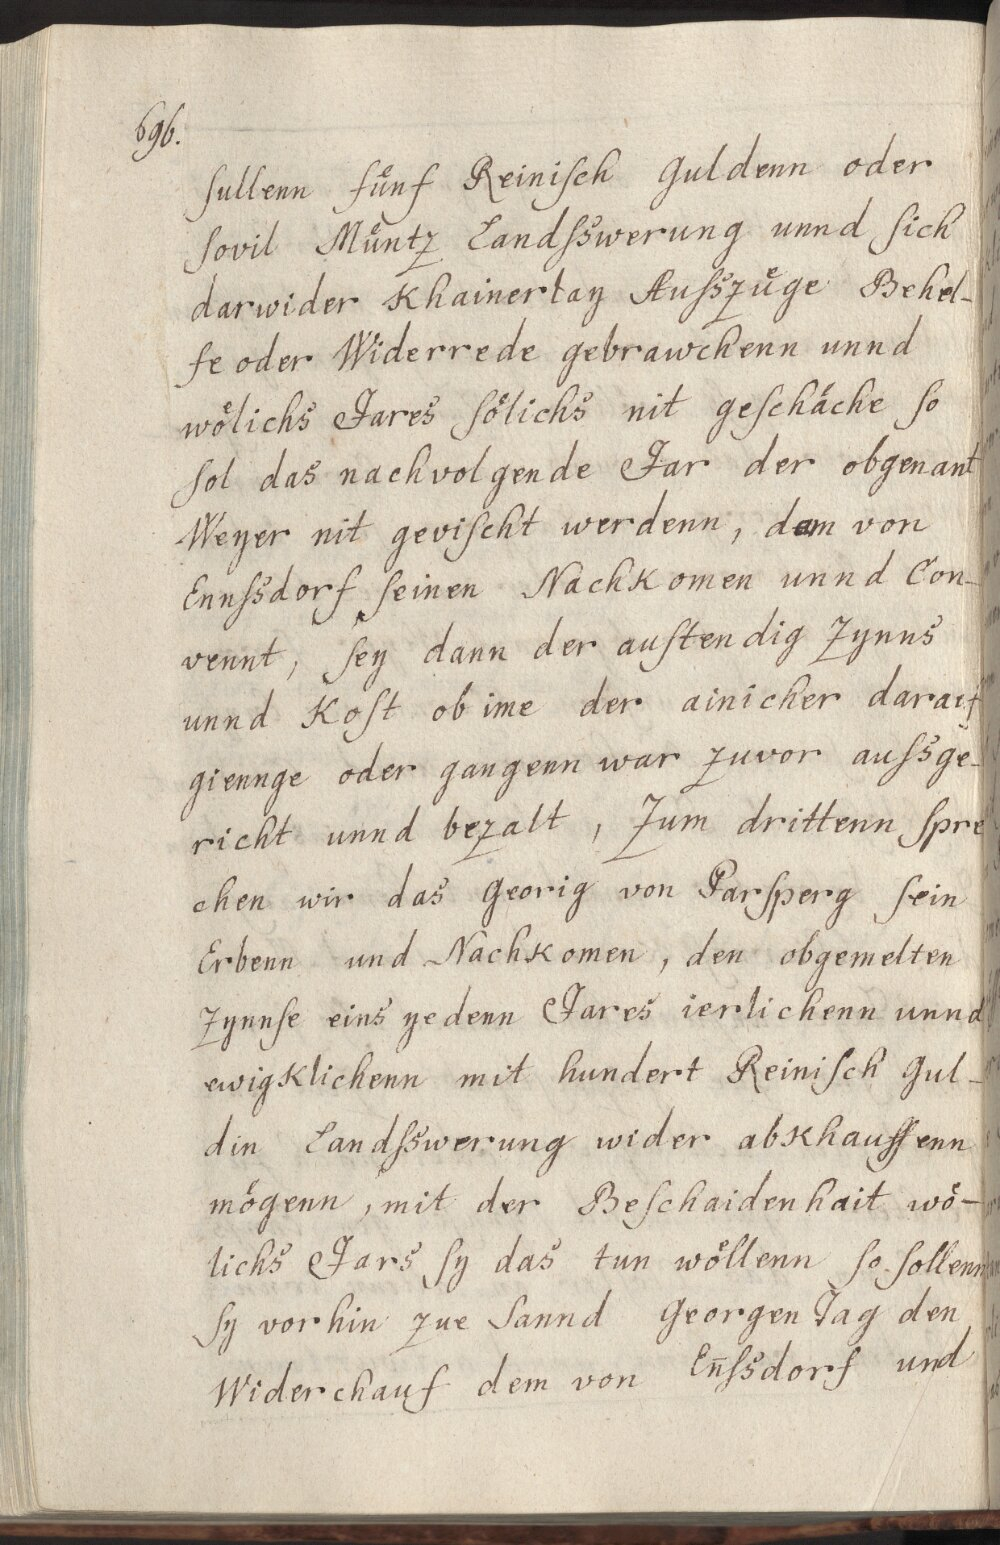 696.
sullenn fuͤnf Reinisch Guldenn oder
sovil Muͤntz Landsswerung unnd sich
darwider Khainerlay Aufszuͤge Behel-
fe oder Widerrede gebrawchenn unnd
woͤlichs Jares soͤlichs nit geschäche so
sol das nachvolgende Jar der obgenant
Weyer nit gevischt werdenn, dem von
Ennssdorf seinen Nachkomen unnd Con-
vennt, sey dann der austendig Zynns
unnd Kost ob ime der ainicher darauf
giennge oder gangenn war zuvor aussge-
richt unnd bezalt, Zum drittenn spre
chen wir das Georig von Parsperg sein
Erbenn und Nachkomen, den obgemelten
Zynnse eins yedenn Jares ierlichenn unnd
ewigklichenn mit hundert Reinisch Gul-
din Landsswerung wider abkhauffenn
mögenn, mit der Beschaidenhait wö-
lichs Jars sy das tun wöllenn so sollenn
sy vorhin zue Sannd Georgen Tag den
Widerchauf dem von En̄ssdorf und